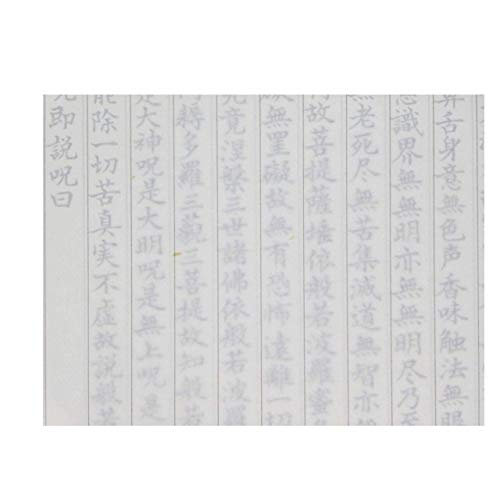 鼻舌身意無色声香味触法無眼
意識界無無明亦無無明尽乃至
無老死尽無苦集滅道無智亦無
故菩提薩埵依般若波羅蜜多
礙無罣礙故無有恐怖遠離一切
究竟涅槃三世諸佛依般若波羅
耨多羅三藐三菩提故知般若
是大神呪是大明呪是無上呪是
能除一切苦真実不虚故説般若
呪即説呪曰